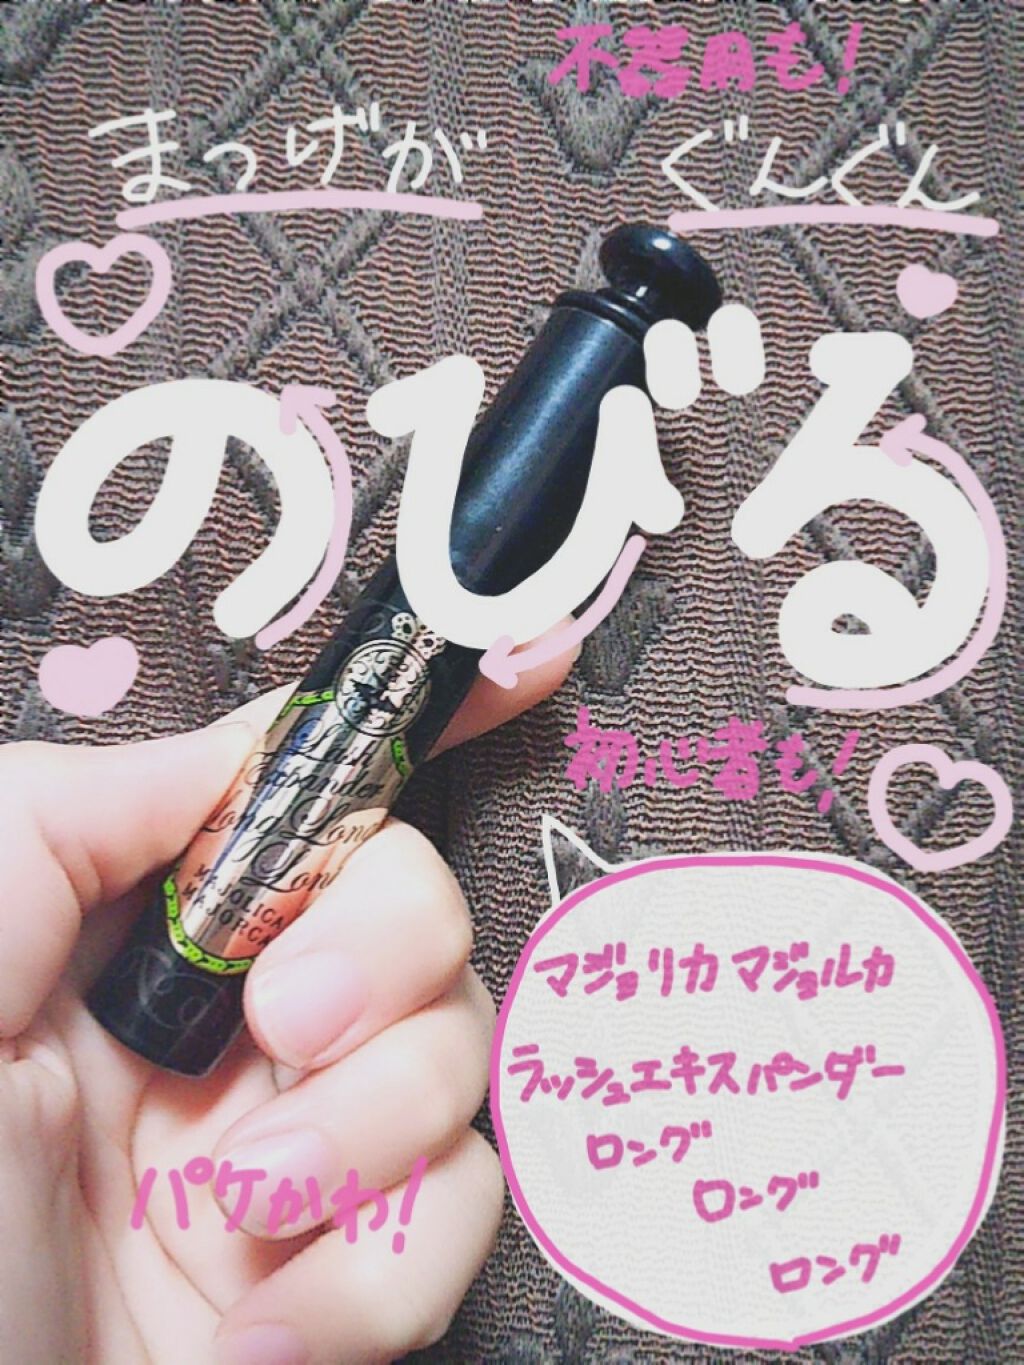 不器用も!
まつげが ぐんぐん
のびる
初心者も!
Lash
Expander
Long Long
Long
MAJOLICA
MAJORCA
マジョリカ マジョルカ
ラッシュエキスパンダー
ロング
ロング
ロング
パケかわ!